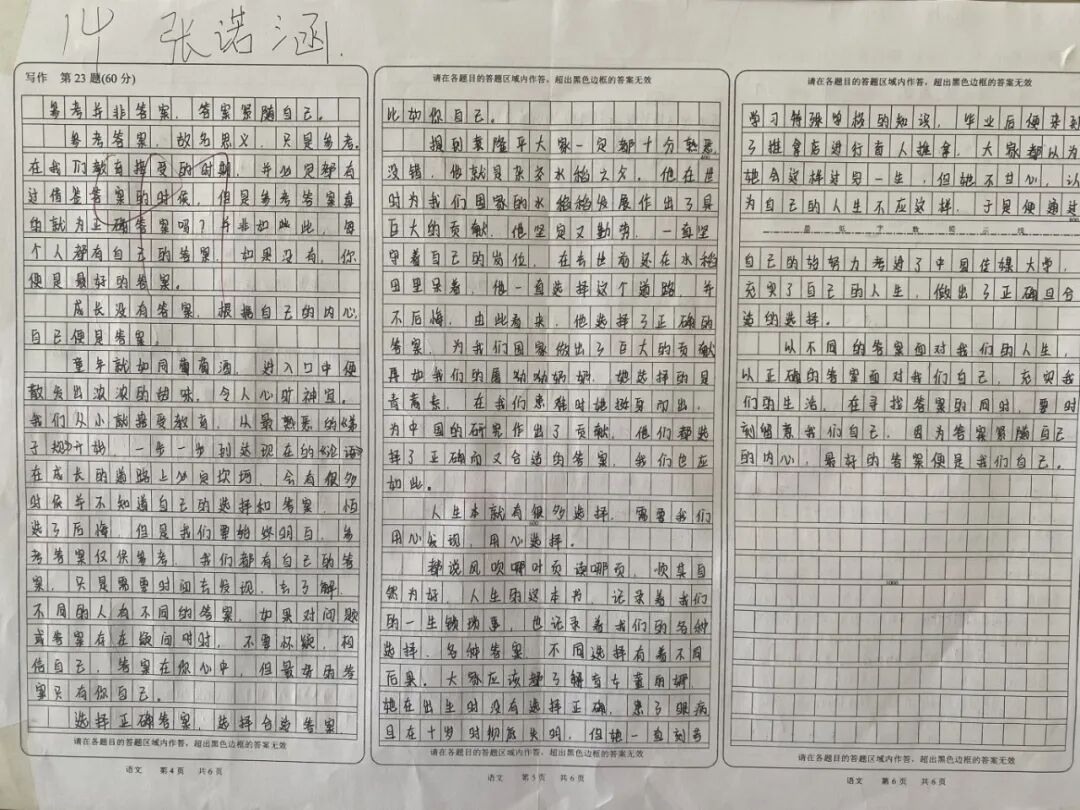 14 张诺涵.
写作 第23题(60分)
参考并非答案,答案紧随自己。
参考答案,故名思义,只是参考。
在我们教育接受的时期,并必定都有
过借答案的时候,但是参考答案真
的就为正确答案吗?并非如此此,每
个人都有自己的答案,如果没有,你
便是最好的答案。
成长没有答案,根据自己的内心
自己便是答案。
童年就如同葡萄酒,进入口中便
散发出浓浓的甜味,令人心旷神宜。
我们从小就接受教育,从最熟悉的《弟
子规》开始,一步一步到达现在的《论语》
在成长的道路上必定坎坷,会有很多
时候并不知道自己的选择和答案,怕
选了后悔,但是我们要始终明白,参
考答案仅供参考,我们都有自己的答
案,只是需要时间去发现,去了解,
不同的人有不同的答案,如果对问题
或答案存在疑问时时,不要怀疑,相
信自己,答案在你心中,但最好的答
案只有你自己。
选择正确答案,选择合适答案,
请在各题目的答题区域内作答,超出黑色边框的答案无效
语文 第4页 共6页
请在各题目的答题区域内作答,超出黑色边框的答案无效
比如你自己。
提到袁隆平大家一定都十分熟悉,
400
没错,他就是杂交水稻之父。他在世
时为我们国家的水稻稻发展作出了具
巨大的贡献,他坚定又勤劳,一直坚
守着自己的岗位,在去世前还在水稻
田里呆着,他一直选择这个道路,并
不后悔,由此看来,他选择了正确的
答案,为我们国家做出了巨大的贡献
再如我们的屠呦呦奶奶,她选择的是
青蒿素,在我们患难时她挺身而出,
为中国的研究作出了贡献,他们都选
择了正确而又合适的答案,我们也应
如此。
人生本就有很多选择,需要我们
600
用心发现,用心选择。
都说风吹哪叶页读哪页,顺其自
然为好,人生的这本书,记录着我们
的一生锁琐事,也记录着我们的各种
选择,各种答案,不同选择有着不同
后果。大家应该都了解有个董丽娜,
她在出生时没有选择正确,患了眼病
且在十岁时彻底失明,但她一直刻苦
请在各题目的答题区域内作答,超出黑色边框的答案无效
语文 第5页 共6页
请在各题目的答题区域内作答,超出黑色边框的答案无效
学习特殊学校的知识,毕业后便来到
了推拿店进行盲人推拿,大家都以为
她会这样过另一生,但她不甘心,认
为自己的人生不应这样,于是便通过
最低字数提示线
自己的的努力考进了中国传媒大学,
充实了自己的人生,做出了正确且合
适的选择。
以不同的答案面对我们的人生,
以正确的答案面对我们自己,充实我
们的生活,在寻找答案的同时,要时
刻留意我们自己,因为答案紧随自己
的内心,最好的答案便是我们自己。
1000
请在各题目的答题区域内作答,超出黑色边框的答案无效
语文 第6页 共6页